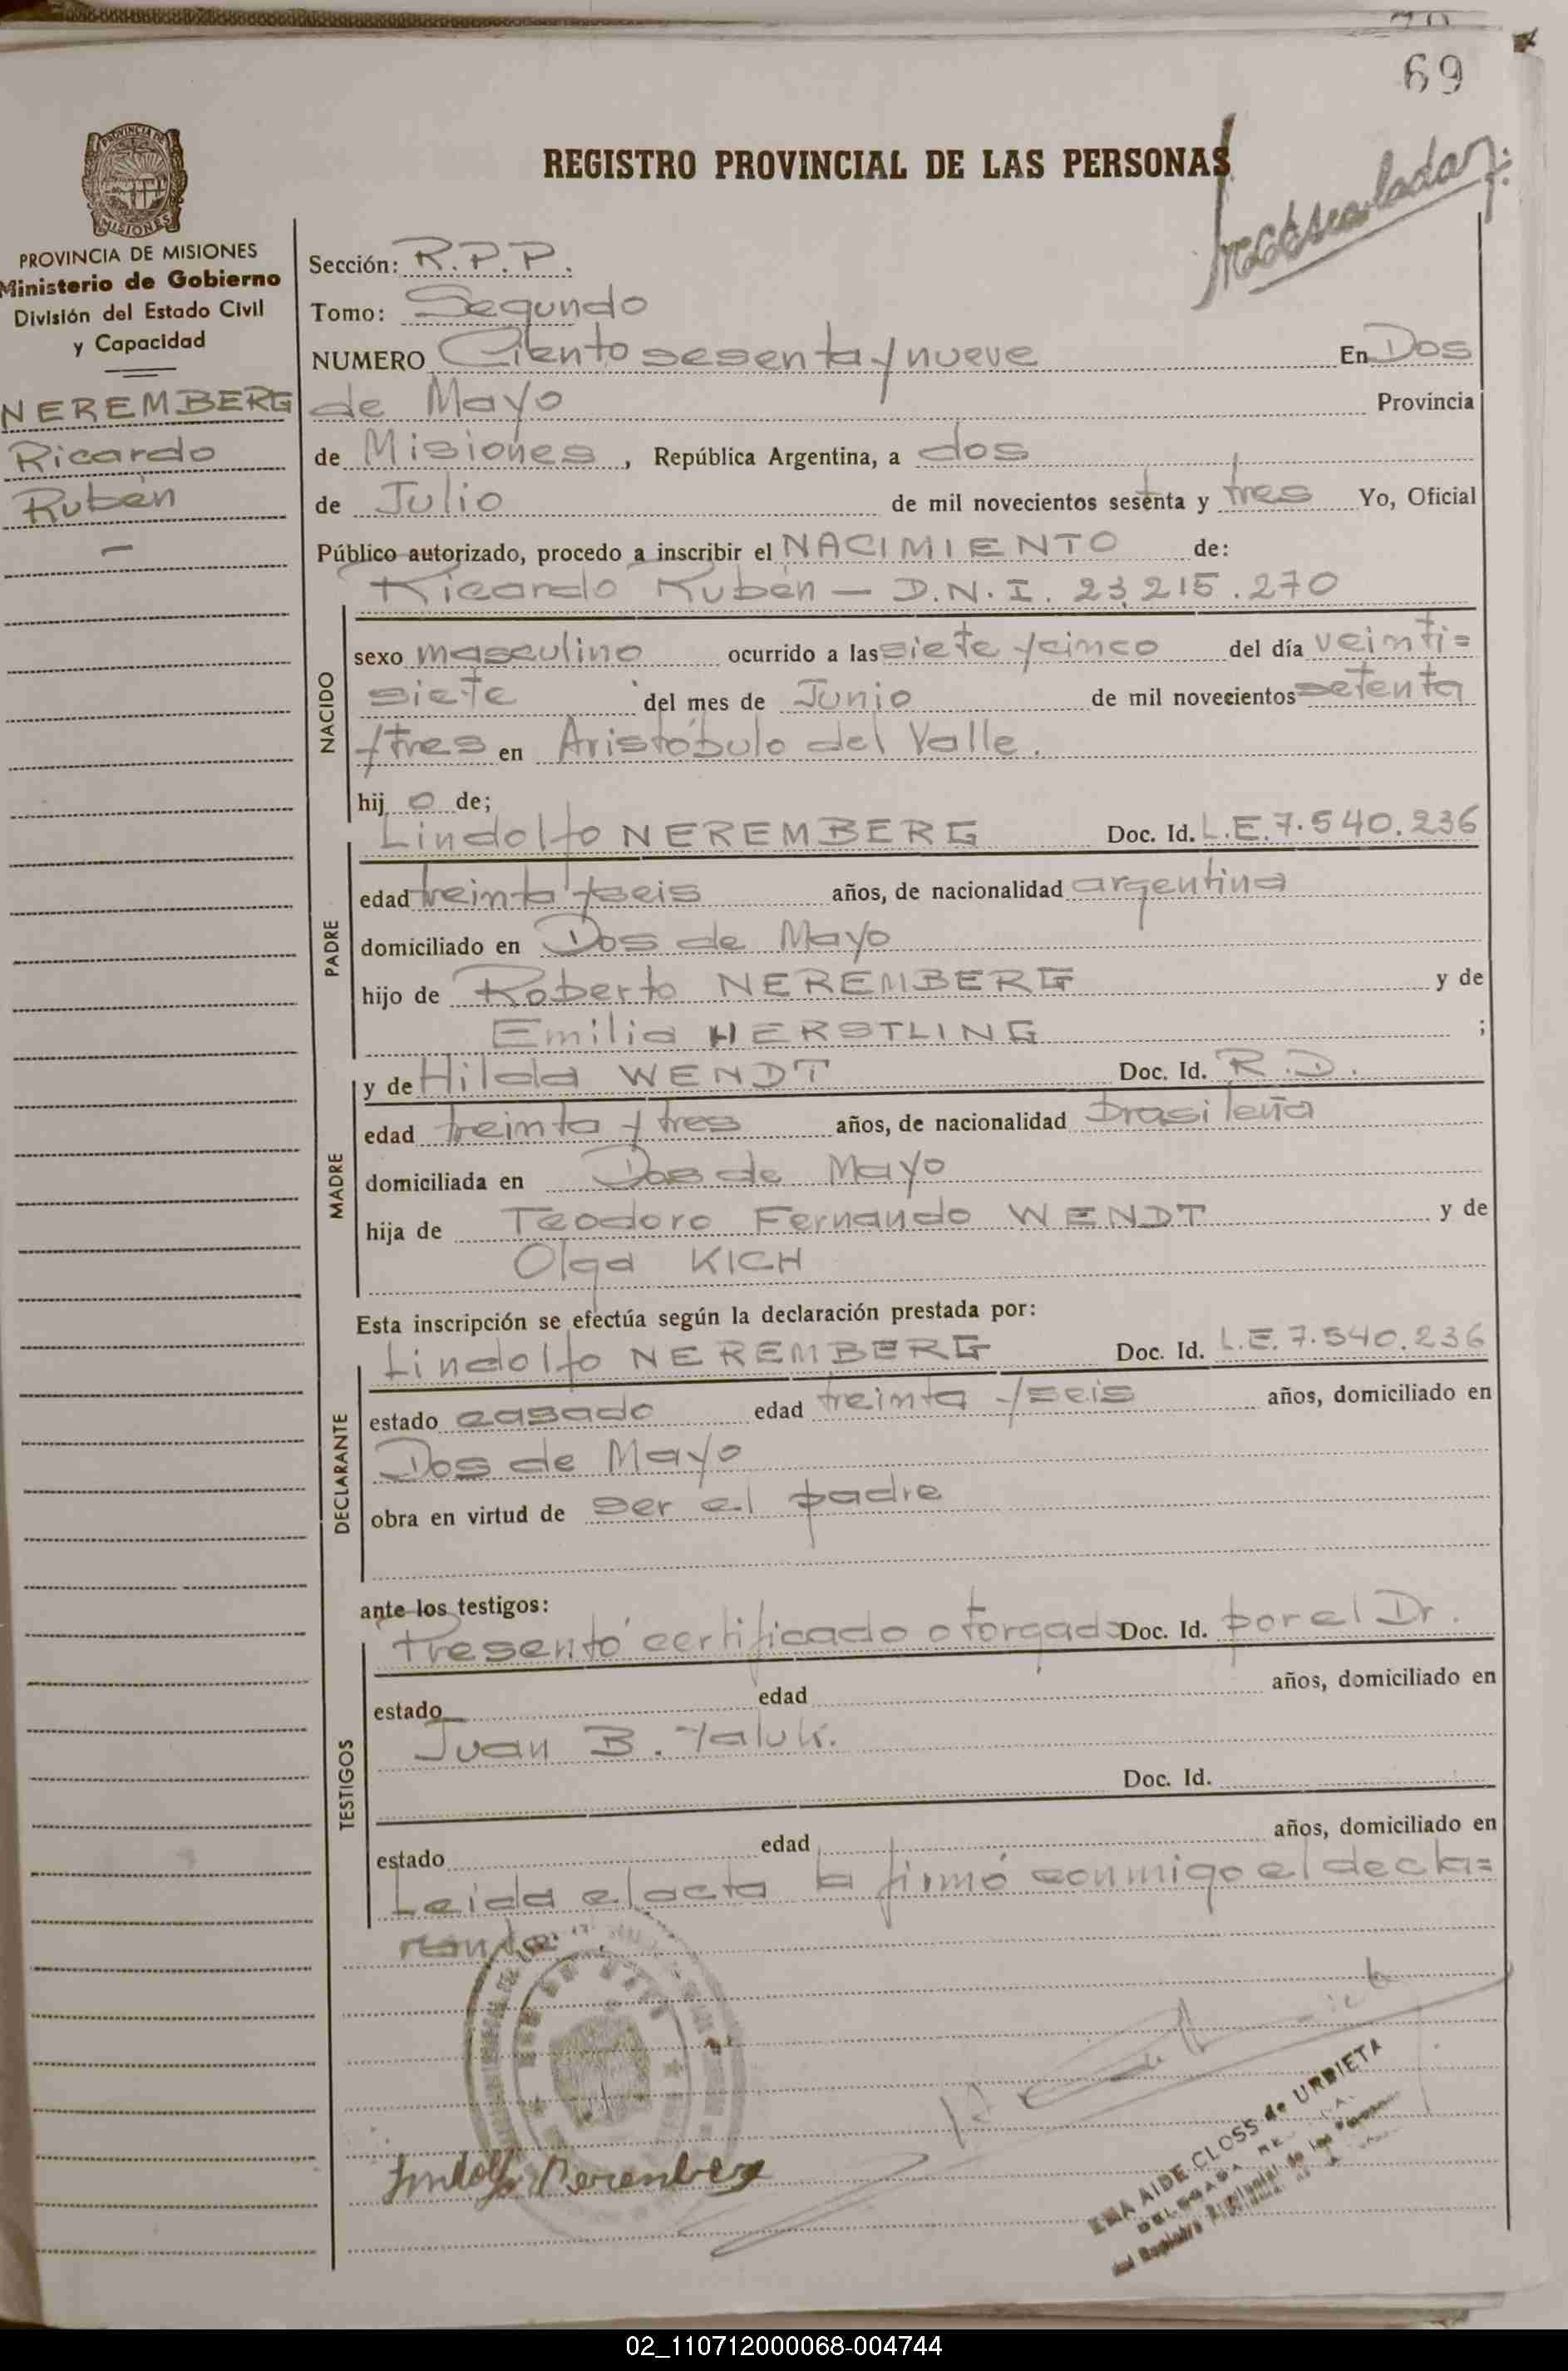 69
REGISTRO PROVINCIAL DE LAS PERSONAS
PROVINCIA DE MISIONES
PROVINCIA DE MISIONES
Ministerio de Gobierno
División del Estado Civil
y Capacidad
NEREMBERG
Ricardo
Rubén
Sección: R.P.P.
Tomo: Segundo
NUMERO Ciento sesenta y nueve En Dos
de Mayo Provincia
de Misiones, República Argentina, a dos
de Julio de mil novecientos sesenta y tres Yo, Oficial
Público autorizado, procedo a inscribir el NACIMIENTO de:
Ricardo Rubén — D.N.I. 23.215.270
NACIDO
sexo masculino ocurrido a las siete y cinco del día veinti=
siete del mes de Junio de mil novecientos setenta
y tres en Aristóbulo del Valle.
hijo de;
PADRE
Lindolfo NEREMBERG Doc. Id. L.E. 7.540.236
edad treinta y seis años, de nacionalidad argentina
domiciliado en Dos de Mayo
hijo de Roberto NEREMBERG y de
Emilia HERSTLING ;
MADRE
y de Hilda WENDT Doc. Id. R.D.
edad treinta y tres años, de nacionalidad brasileña
domiciliada en Dos de Mayo
hija de Teodoro Fernando WENDT y de
Olga KICH
Esta inscripción se efectúa según la declaración prestada por:
DECLARANTE
Lindolfo NEREMBERG Doc. Id. L.E. 7.540.236
estado casado edad treinta y seis años, domiciliado en
Dos de Mayo
obra en virtud de ser el padre
ante los testigos:
TESTIGOS
Presentó certificado otorgado Doc. Id. por el Dr.
estado edad años, domiciliado en
Juan B. Yaluk.
Doc. Id.
estado edad años, domiciliado en
Leída el acta la firmó conmigo el decla=
rante
Lindolfo Neremberg
EMA AIDE CLOSS de URRIETA
DELEGADA
del Registro Provincial de las Personas
02_110712000068-004744